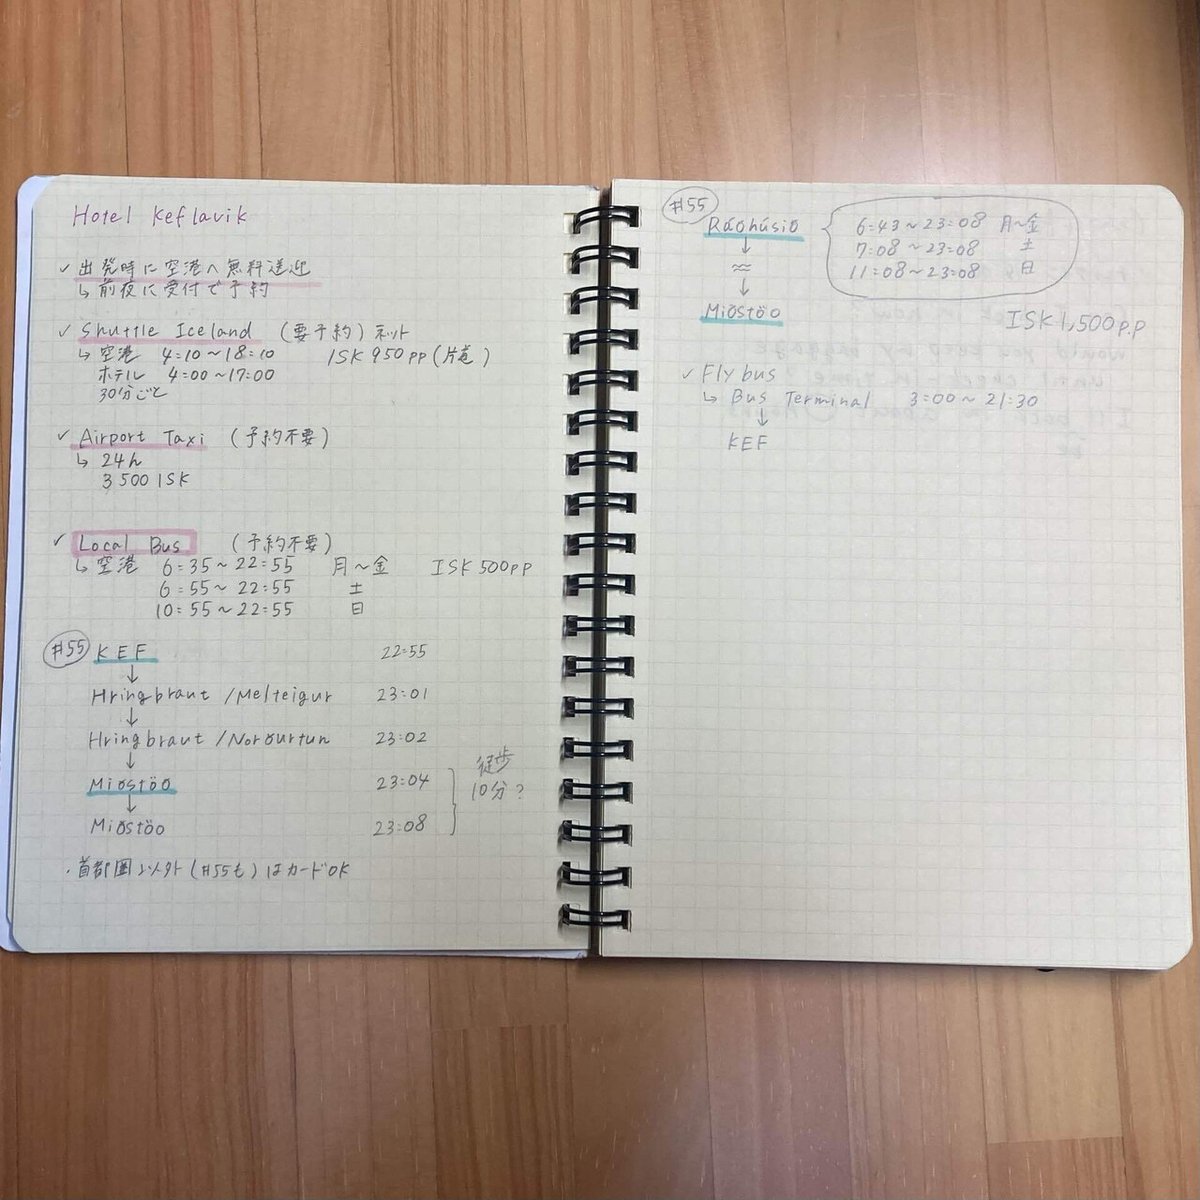 Hotel Keflavik
✓ 出発時に空港へ無料送迎
↳ 前夜に受付で予約
✓ Shuttle Iceland (要予約) ネット
↳ 空港 4:10～18:10 ISK 950pp (片道)
ホテル 4:00～17:00
30分ごと
✓ Airport Taxi (予約不要)
↳ 24h
3500 ISK
✓ Local Bus (予約不要)
↳ 空港 6:35～22:55 月～金 ISK 500pp
6:55～22:55 土
10:55～22:55 日
#55 KEF 22:55
↓
Hringbraut / Melteigur 23:01
↓
Hringbraut / Norðurtun 23:02
↓
Miðstöð 23:04
↓
Miðstöð 23:08
徒歩
10分?
・首都圏以外(#55も)はカードOK
#55
Ráðhúsið 6:43～23:08 月～金
↓ 7:08～23:08 土
≈ 11:08～23:08 日
↓
Miðstöð ISK 1,500p.p
✓ Flybus
↳ Bus Terminal 3:00～21:30
↓
KEF